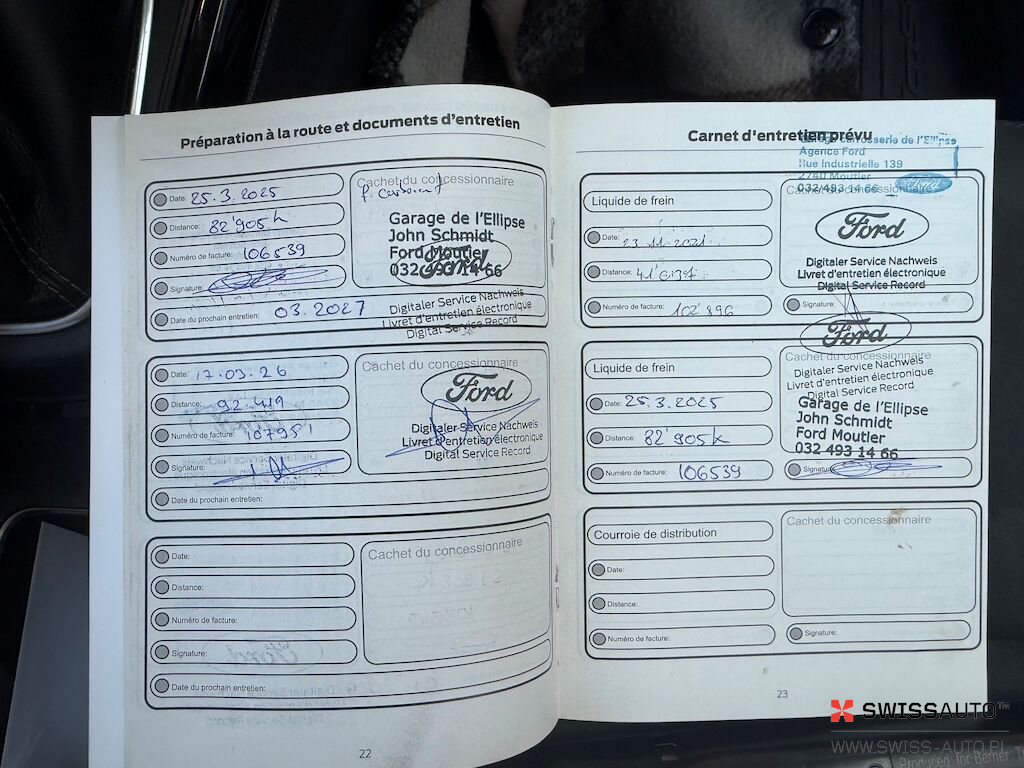 Préparation à la route et documents d'entretien
Date: 25.3.2025
Distance: 82'905k
Numéro de facture: 106539
Signature:
Date du prochain entretien: 03.2027
Cachet du concessionnaire
Garage de l'Ellipse
John Schmidt
Ford Moutier
032 493 14 66
Ford
Digitaler Service Nachweis
Livret d'entretien électronique
Digital Service Record
Date: 17.03.26
Distance: 92.419
Numéro de facture: 107951
Signature:
Date du prochain entretien:
Cachet du concessionnaire
Ford
Digitaler Service Nachweis
Livret d'entretien électronique
Digital Service Record
Date:
Distance:
Numéro de facture:
Signature:
Date du prochain entretien:
Cachet du concessionnaire
22
Carnet d'entretien prévu
Garage carrosserie de l'Ellipse
Agence Ford
Rue Industrielle 139
2740 Moutier
032/493 14 66
Ford
Liquide de frein
Date: 23.11.2021
Distance:
Numéro de facture: 102'896
Cachet du concessionnaire
Ford
Digitaler Service Nachweis
Livret d'entretien électronique
Digital Service Record
Signature:
Liquide de frein
Date: 25.3.2025
Distance: 82'905k
Numéro de facture: 106539
Ford
Cachet du concessionnaire
Digitaler Service Nachweis
Livret d'entretien électronique
Digital Service Record
Garage de l'Ellipse
John Schmidt
Ford Moutier
032 493 14 66
Signature:
Courroie de distribution
Date:
Distance:
Numéro de facture:
Cachet du concessionnaire
Signature:
23
SWISSAUTO™
WWW.SWISS-AUTO.PL
Produced for Berner